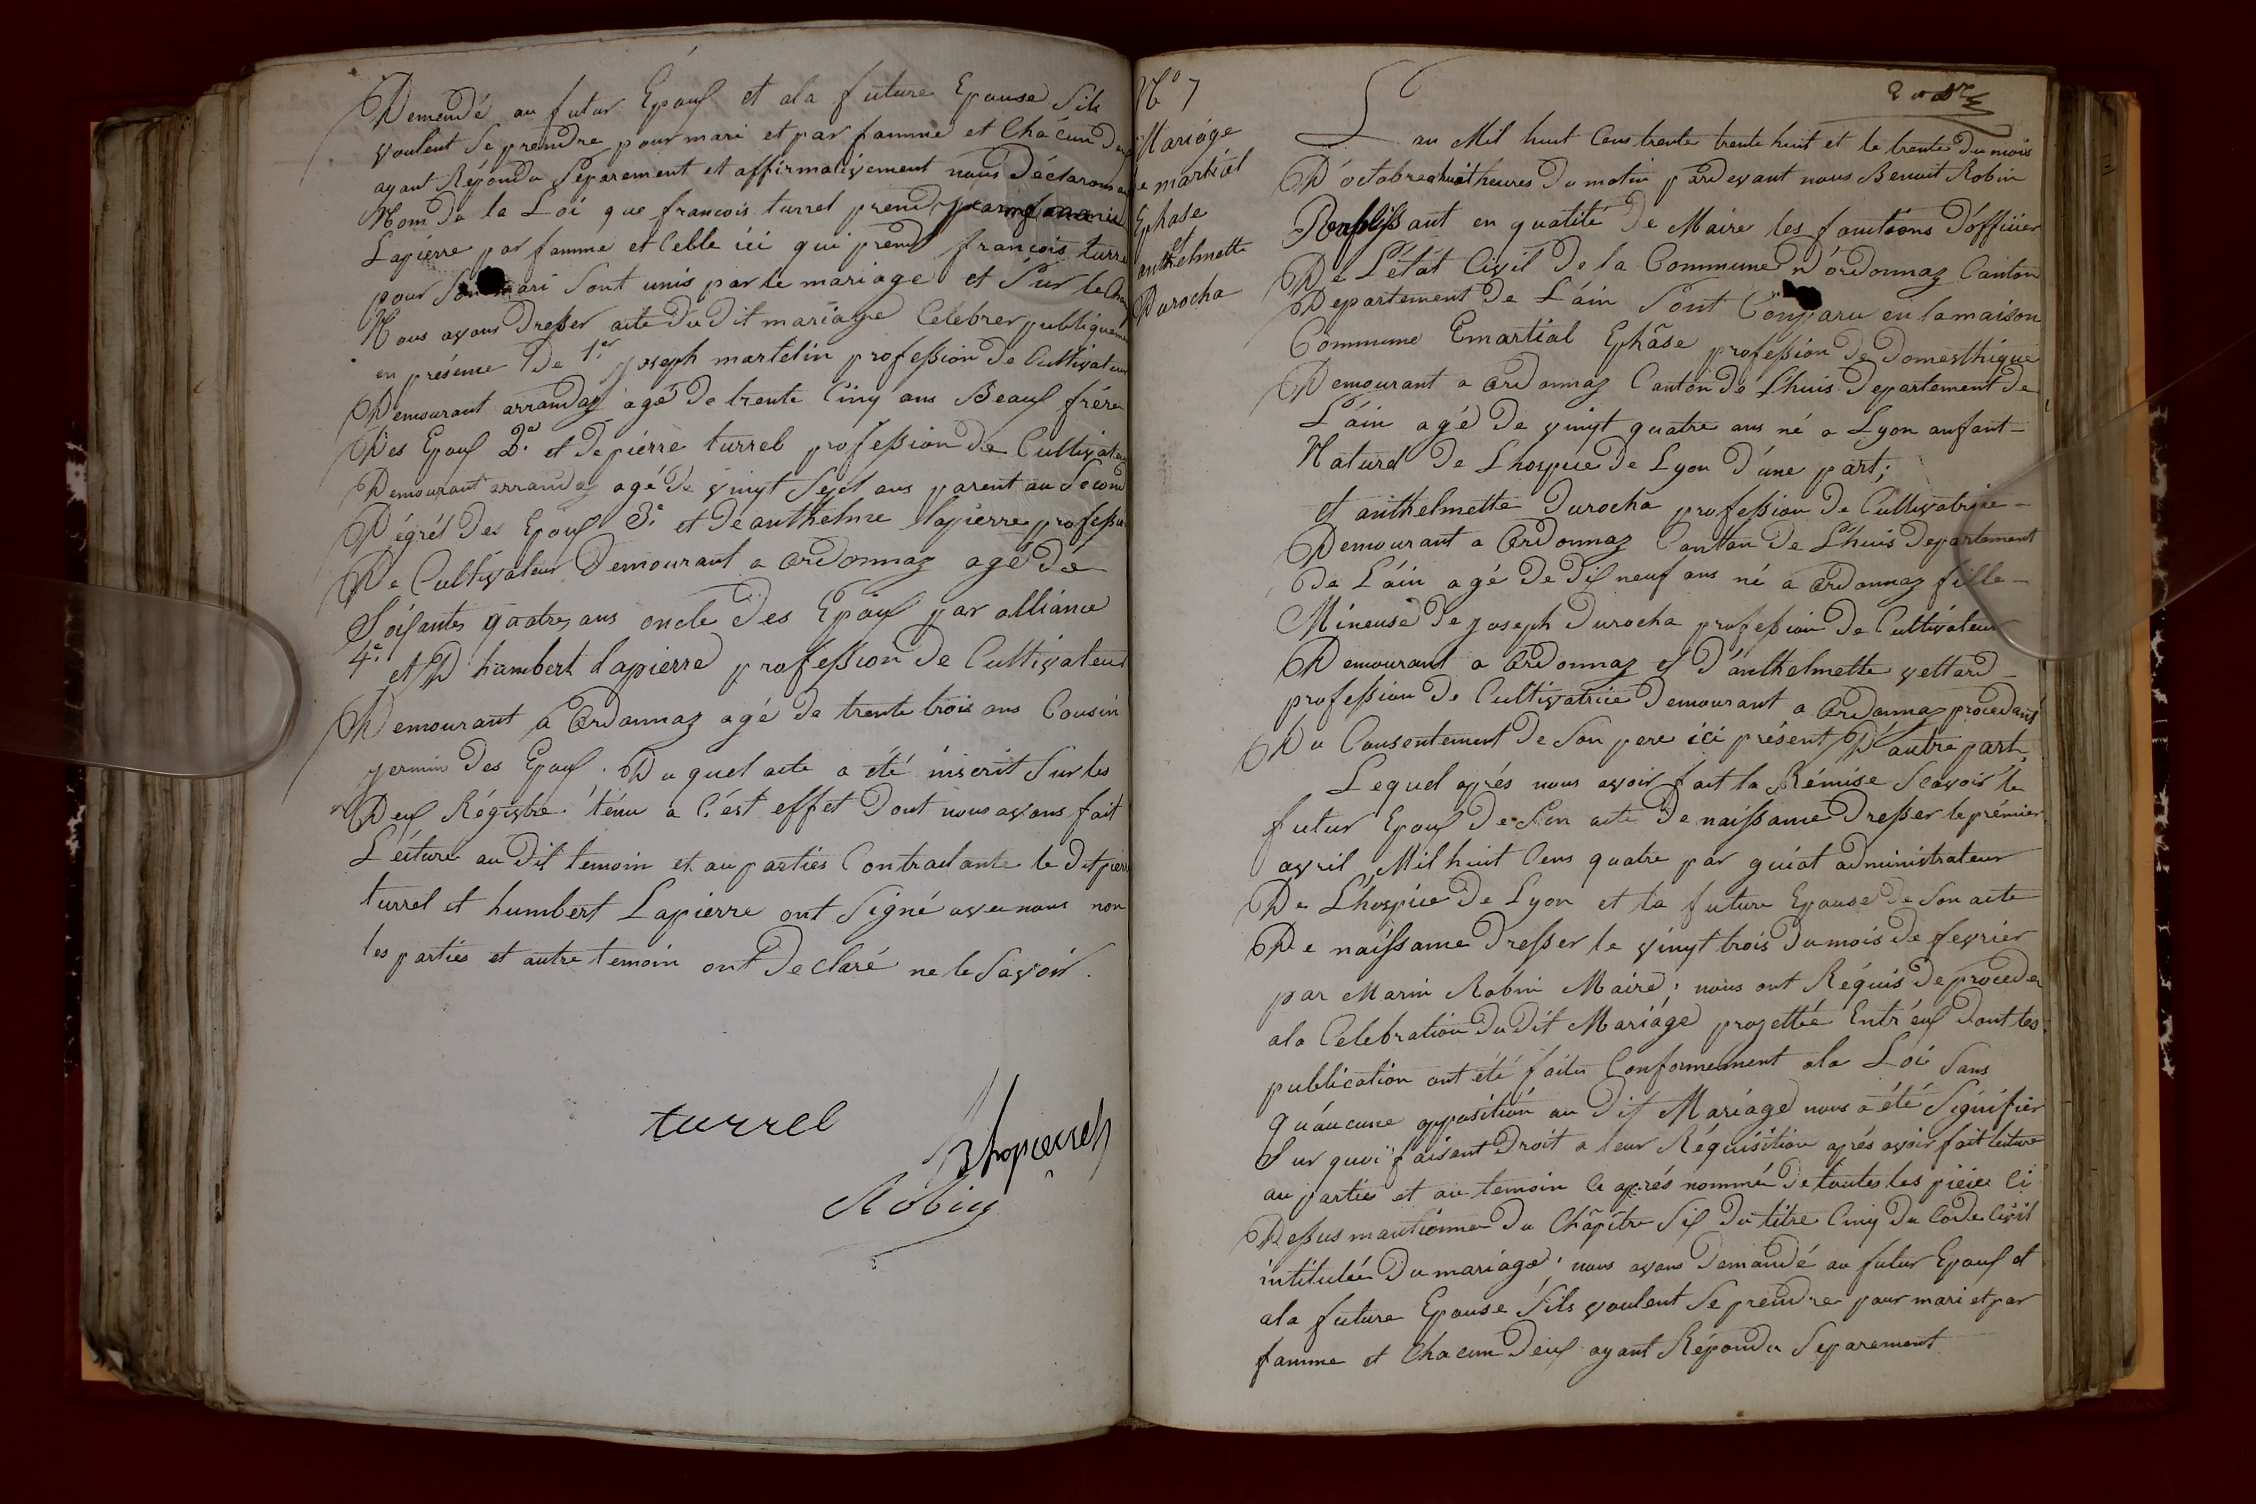 Demendé au futur Epoux et ala future Epouse Sils
voulent Se prendre pour mari et par famme et Chácun
ayant Répondu Séparement et affirmativement nous Déclarons
Nom De la Loi que francois turrel prend
Lapierre par famme et Celle ici qui prend francois turre
pour Son mari Sont unis par le mariage et Sur le
Nous avons Dresser acte Du Dit mariage Celebrer publiqueme
en présence De 1er joseph martelin profession De Cultivateur
Demeurant arrandaz agé De trente Cinq ans Beaux frére
Des Epoux 2e et De pierre turrel profession De Cultivate
Demeurant arrandaz agé De vingt Sept ans parent au Second
Dégrél Des Epoux 3e et De anthelme lapierre professi
De Cultivateur Demeurant a Ordonnaz agé De
Soixantes quatres ans oncle Des Epoux par alliance
4e et D humbert lapierre profession De Cultivateur
Demeurant a Ordonnaz agé De trente trois ans Cousin
germin Des Epoux. Du quel acte a été inscrit Sur les
Deux Régistre tenu a C'est effet Dont nous avons fait
Lécture au Dit temoin et au parties Contractante le Dit pierr
turrel et humbert Lapierre ont Signé avec nous non
les parties et autre temoin ont Declaré ne le Savoir.
turrel
Robin
No 7
Mariáge
De martial
Ephase
et
anthelmette
Durocha
Lan Mil huit Cens trente trente huit et le trente Du mois
D'octobre a huit heures Du matin pardevant nous Benoit Robin
Remplissant en qualité De Maire les fonctions D'officier
De L'état Civil De la Commune D'ordonnaz Canton
Departement De L'áin Sont Comparu en la maison
Commune Emartial Ephâse profession De Domesthique
Demeurant a Ordonnaz Canton De Lhuis Departement De
L'áin agé De vingt quatre ans né a Lyon anfant
Naturel De Lhospice De Lyon D'une part;
et anthelmette Durocha profession De Cultivatrice
Demeurant a Ordonnaz Canton De Lhuis Departement
De L'áin agé De Dix neuf ans né a Ordonnaz fille
Mineuse De joseph Durocha profession De Cultivateur
Demeurant a Ordonnaz et D'anthelmette vettard
profession De Cultivatrice Demeurant a Ordonnaz procedant
Du Consentement De Son pere ici présent D'autre part
Lequel aprés nous avoir fait la Rémise Scavoir le
futur Epoux De Son acte De naissance Dresser le prémier
avril Mil huit Cens quatre par guiat administrateur
De L'hospice De Lyon et la future Epouse De Son acte
De naissance Dresser le vingt trois Du mois De fevrier
par Marin Robin Maire; nous ont Réquis De proceder
ala Celebration Du Dit Mariáge projettée Entr'eux Dont les
publication ont été faites Conformement ala Loi Sans
qu'áucune opposition au Dit Mariáge nous a été Signifier
Sur quoi faisant Droit a leur Réquisition aprés avoir fait lecture
au parties et au temoin Ce aprés nommé De toutes les piéces Ci
Dessus mantionner Du Chapitre Six Du titre Cinq Du Code Civil
intitulée Du mariage; nous avons Demandé au futur Epoux et
ala future Epouse Sils voulent Se prendre pour mari et par
famme et Chacun Deux ayant Répondu Separement